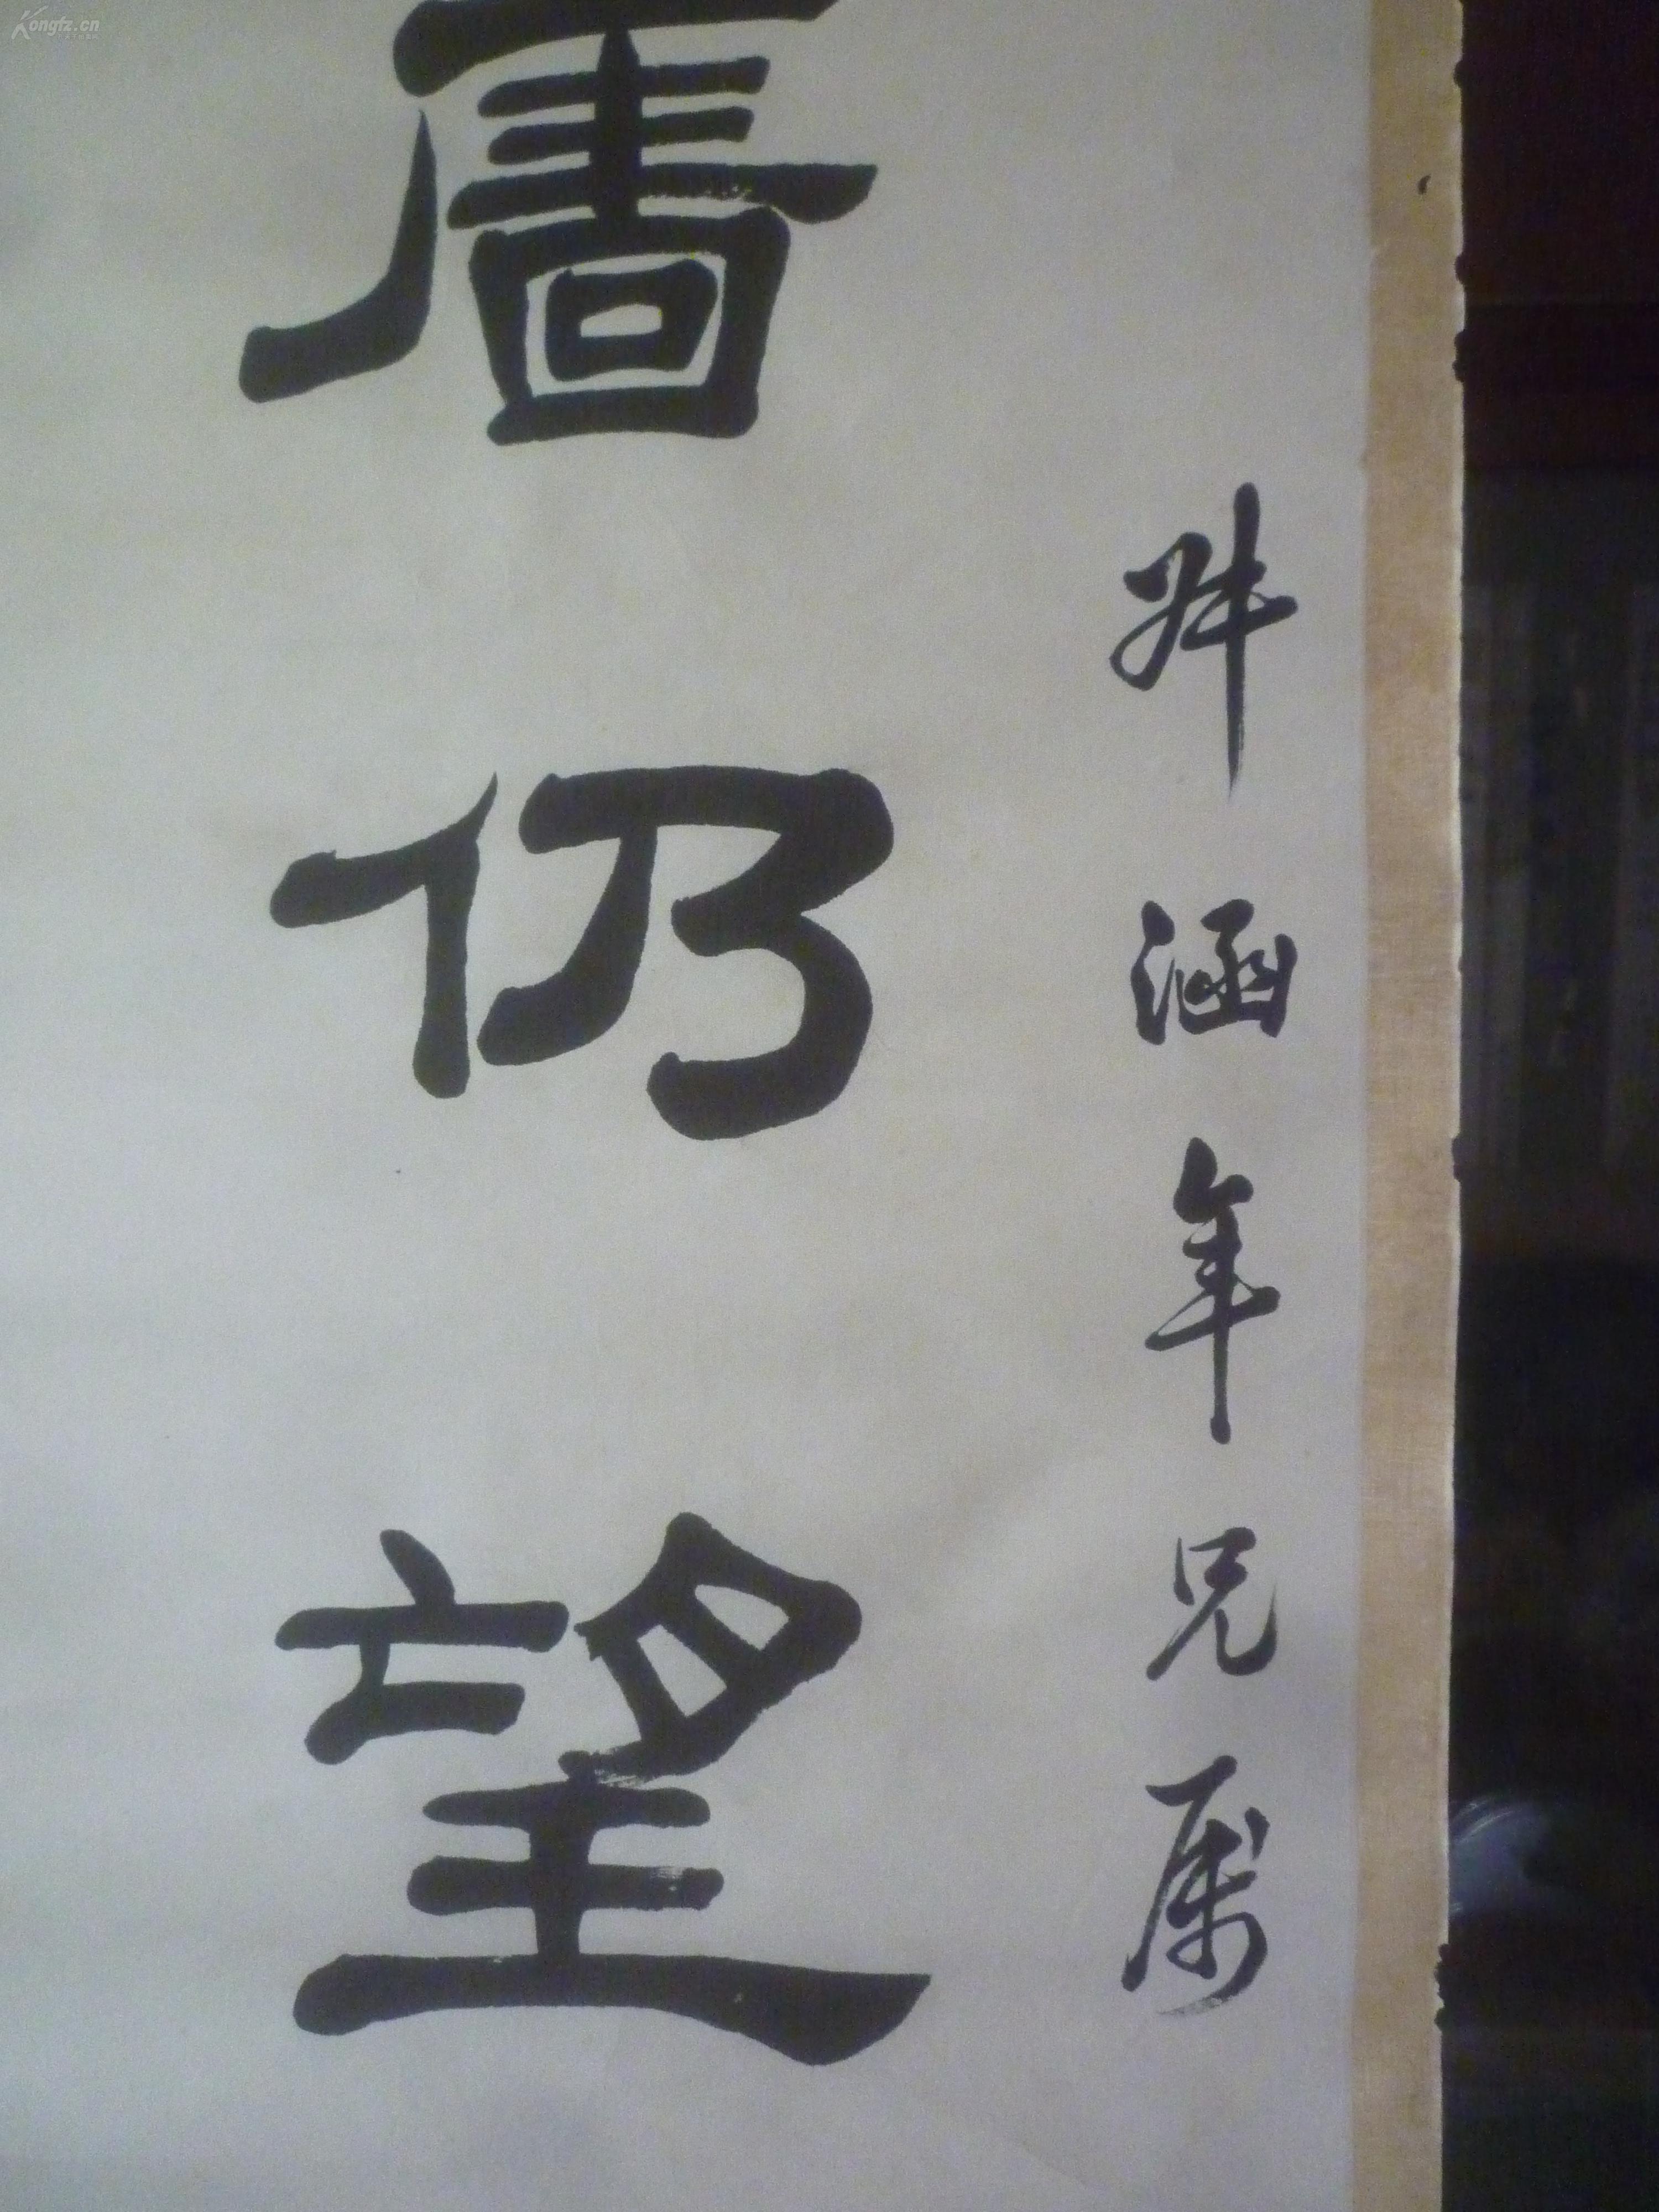 涵年兄属
仍望
Kongfz.cn